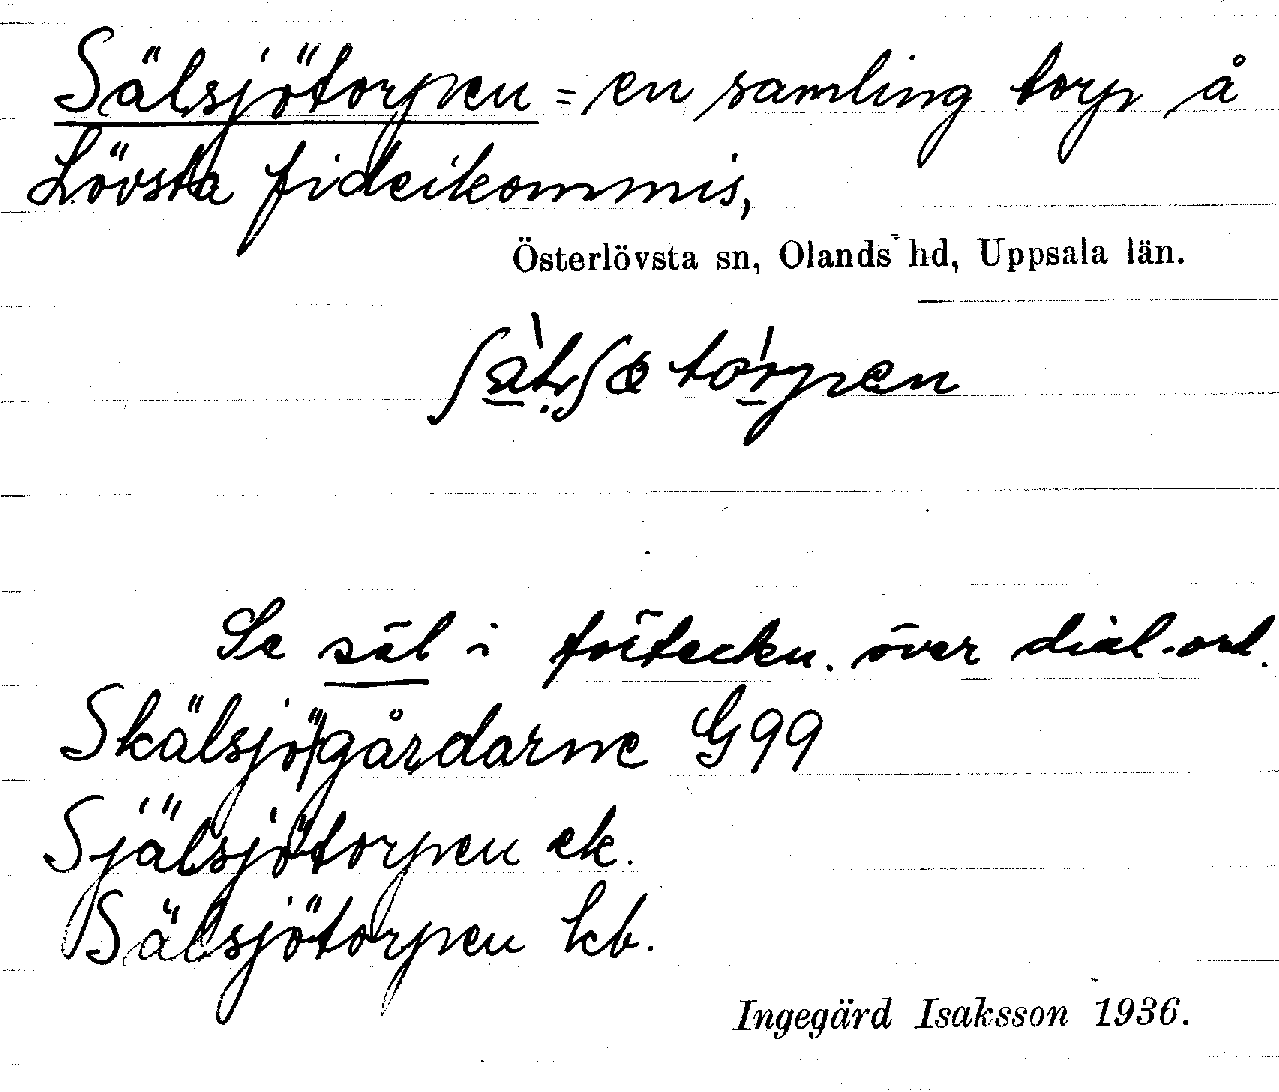 Sälsjötorpen = en samling torp å
Lövsta fideikommis,
Österlövsta sn, Olands hd, Uppsala län.
torpen
Se säl i förteckn. över dial.ord.
Skälsjögårdarne G99
Själsjötorpen ek.
Sälsjötorpen kb.
Ingegärd Isaksson 1936.